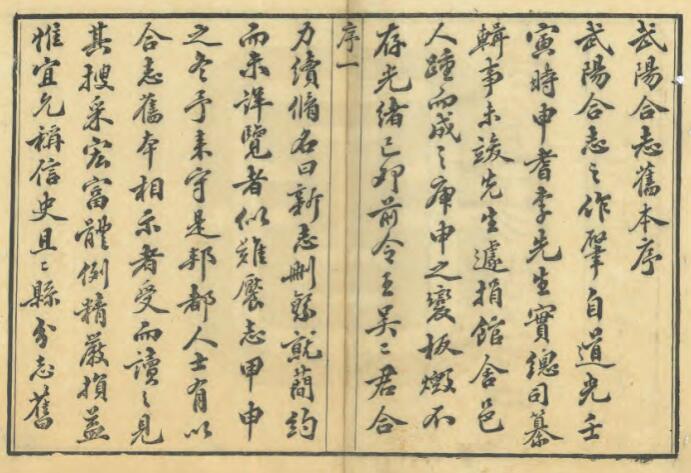 武陽合志舊本序
武陽合志之作肇自道光壬
寅時申耆李先生實總司纂
輯事未竣先生遽捐館舍邑
人踵而成之庚申之變板燬不
存光緒己卯前令王吴二君合
序一
力續脩名曰新志刪繁就簡約
而未詳覽者似難饜志甲申
之冬予来守是邦都人士有以
合志舊本相示者受而讀之見
其搜采宏富體例精嚴損益
惟宜允稱信史且二縣分志舊